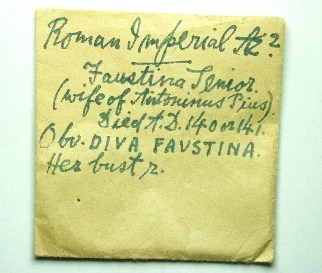 Roman Imperial Æ2
Faustina Senior.
(wife of Antoninus Pius).
Died A.D. 140 or 141.
Obv. DIVA FAVSTINA.
Her bust r.